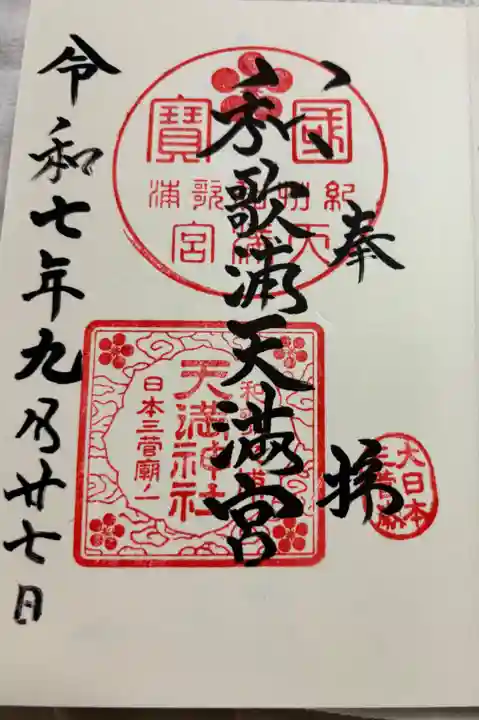 奉拝
和歌浦天満宮
令和七年九月廿七日
國寶
紀州和歌浦
天満宮
和歌浦
天満神社
日本三菅廟ノ一
大日本
三菅廟